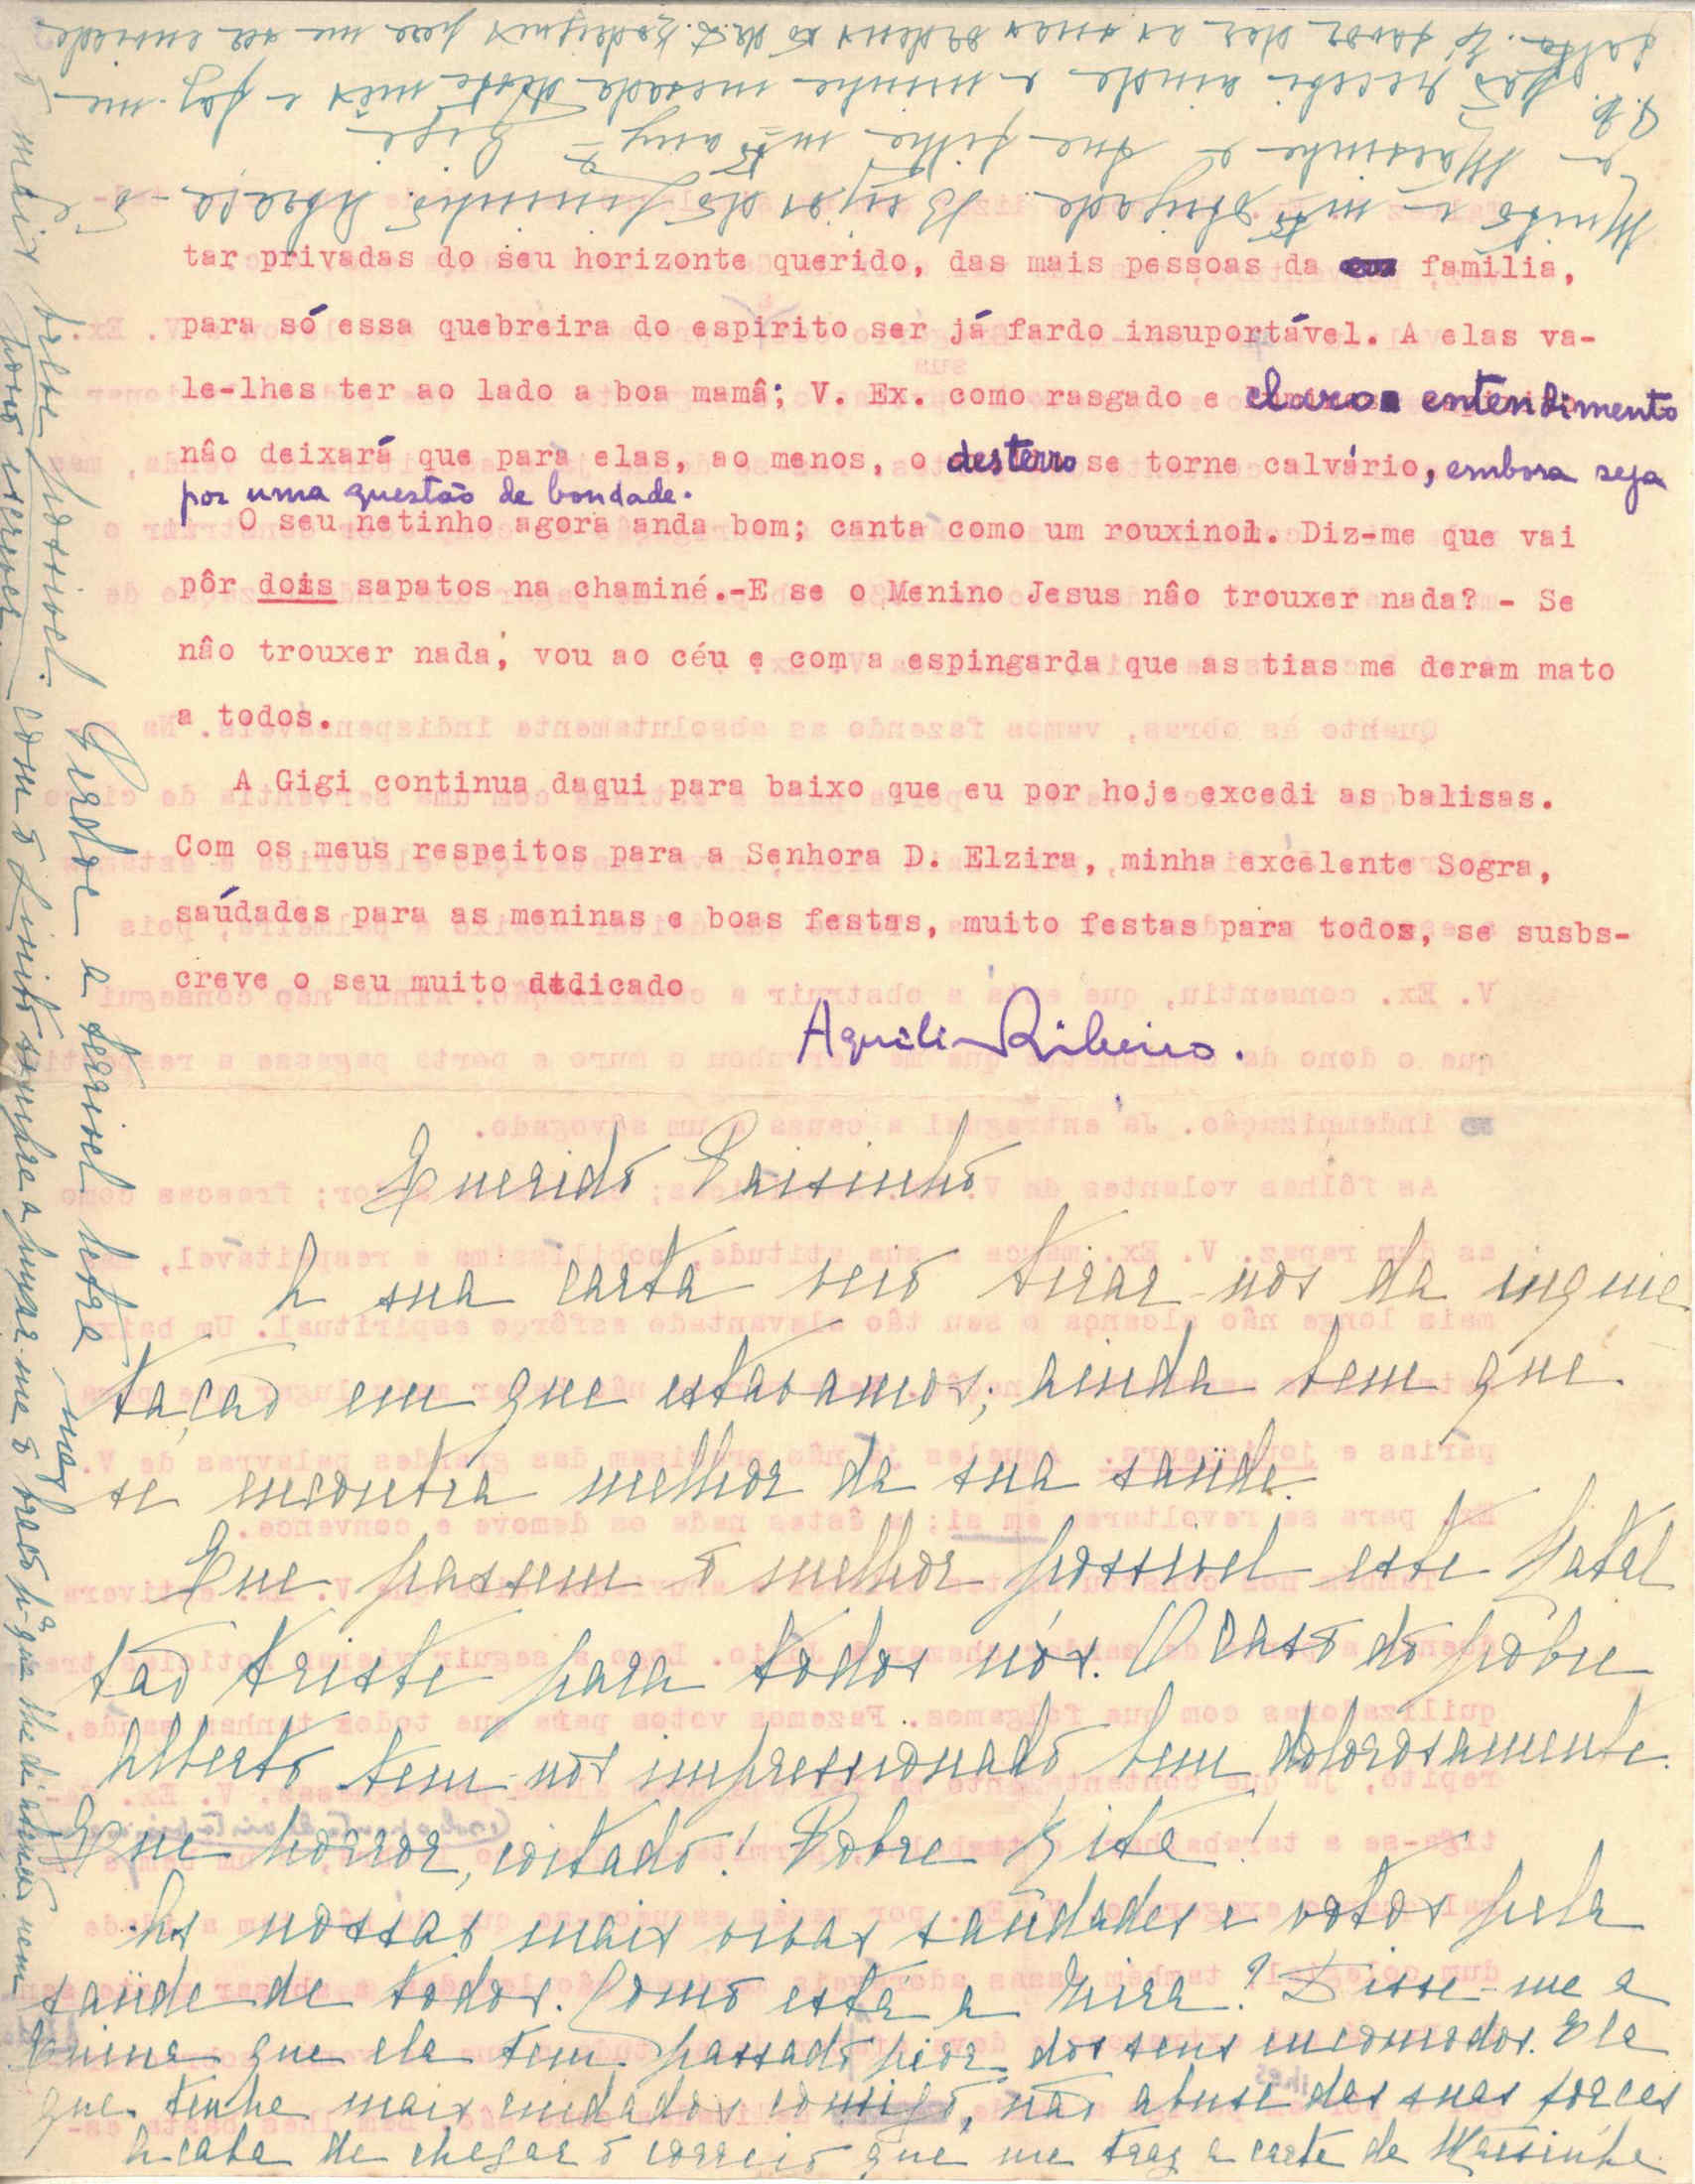 tar privadas do seu horizonte querido, das mais pessoas da família,
para só essa quebreira do espirito ser já fardo insuportável. A elas va-
le-lhes ter ao lado a boa mamâ; V. Ex. como rasgado e claro entendimento
nâo deixará que para elas, ao menos, o desterro se torne calvário, embora seja
por uma questão de bondade.
O seu netinho agora anda bom; canta como um rouxinol. Diz-me que vai
pôr dois sapatos na chaminé.-E se o Menino Jesus nâo trouxer nada? - Se
nâo trouxer nada, vou ao céu e com a espingarda que as tias me deram mato
a todos.
A Gigi continua daqui para baixo que eu por hoje excedi as balisas.
Com os meus respeitos para a Senhora D. Elzira, minha excelente Sogra,
saúdades para as meninas e boas festas, muito festas para todos, se susbs-
creve o seu muito dedicado
Aquilino Ribeiro.
Querido Paisinho
A sua carta veio tirar-nos da inquie
tação em que estavamos; ainda bem que
se encontra melhor da sua saúde.
Que passem o melhor possivel este Natal
tão triste para todos nós. O caso do pobre
Alberto tem-nos impressionado bem dolorosamente.
Que horror, coitado! Pobre Zita!
As nossas mais vivas saúdades e votos pela
saúde de todos. Como está a Mira? Disse-me a
que ela tem passado pior dos seus incomodos. Ela
que tenha mais cuidados comsigo, não abuse das suas forças
Acaba de chegar o correio que me traz a carta da Mãesinha
Muito e mto obrigada. Beijos do Aninhas. Abraça-o
e a Mãesinha a sua filha mto amga
Gigi
P.S. Não recebi ainda a minha mesada deste mês e faz-me
falta. É favor dar as suas ordens ao dr. L. Rodrigues para me ser enviada
o mais breve possivel.
Perdoe a terrivel letra mas
com o sempre a puxar-me o braço pa que lhe dê atenção nem